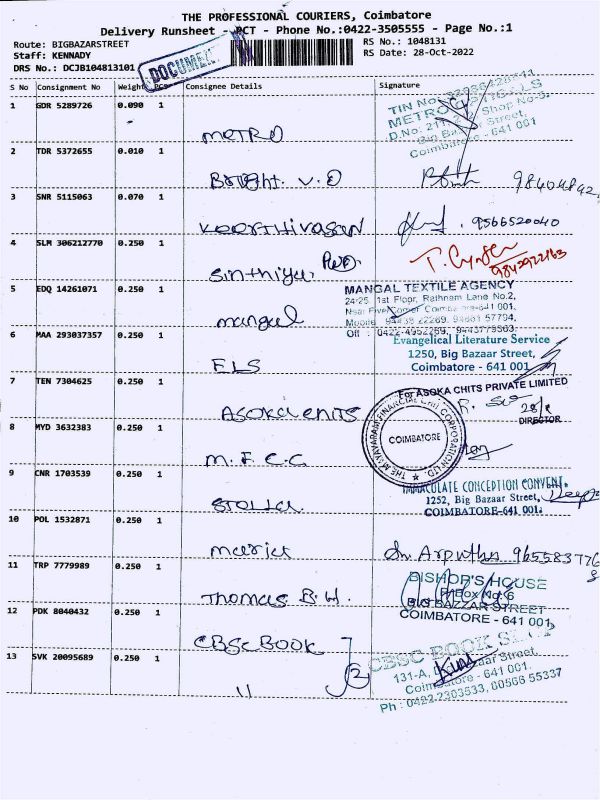 THE PROFESSIONAL COURIERS, Coimbatore
Delivery Runsheet - PCT - Phone No.:0422-3505555 - Page No.:1
Route: BIGBAZARSTREET
RS No.: 1048131
Staff: KENNADY
RS Date: 28-Oct-2022
DRS No.: DCJB104813101
DOCUMENT
S No Consignment No Weight PCS Consignee Details Signature
1 GDR 5289726 0.090 1
METRO
TIN No.
METRO
D.No. 211, Shop No-9,
Big Bazaar Street,
Coimbatore - 641 001
2 TDR 5372655 0.010 1
Bright. V.O
3 SNR 5115063 0.070 1
Keerthivasan
9566520040
4 SLM 306212770 0.250 1
Sinthiya
9842922163
5 EDQ 14261071 0.250 1
mangal
MANGAL TEXTILE AGENCY
24-25, 1st Floor, Rathnam Lane No.2,
Near Five Corner Coimbatore-641 001.
Mobile 94438 22269, 94881 57794,
Off : 0422-4952269, 9443779563
6 MAA 293037357 0.250 1
ELS
Evangelical Literature Service
1250, Big Bazaar Street,
Coimbatore - 641 001
7 TEN 7304625 0.250 1
ASOKA CHITS
For ASOKA CHITS PRIVATE LIMITED
DIRECTOR
8 MYD 3632383 0.250 1
M.F.C.C
THE MAYAVARAM FINANCIAL CHIT CORPORATION LTD.
COIMBATORE
9 CNR 1703539 0.250 1
Stella
IMMACULATE CONCEPTION CONVENT,
1252, Big Bazaar Street,
COIMBATORE-641 001.
10 POL 1532871 0.250 1
Maria
Sr. Arputha 9655837768
11 TRP 7779989 0.250 1
Thomas B.H.
BISHOP'S HOUSE
P.Box No:6
BIG BAZZAR STREET
COIMBATORE - 641 001
12 PDK 8040432 0.250 1
CBSC BOOK
2
13 SVK 20095689 0.250 1
"
CBSC BOOK SHOP
131-A, Big Bazaar Street,
Coimbatore - 641 001.
Ph : 0422-2303533, 80566 55337